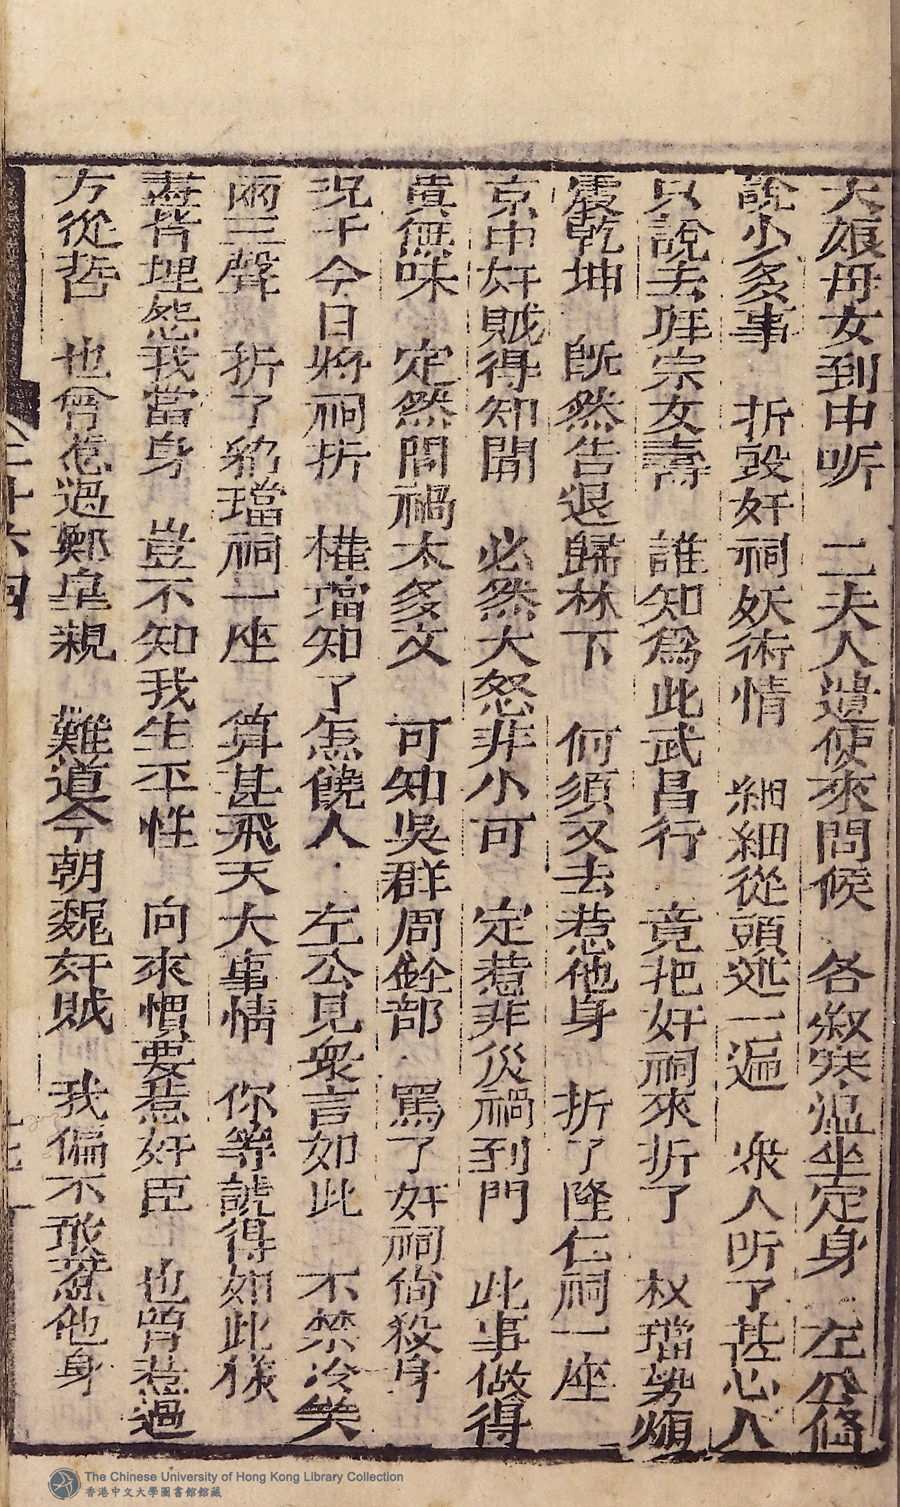 大娘母女到中听　二夫人遣使來問候　各叙寒温坐定身　左公俻
說少多事　折毀奸祠妖術情　細細從頭述一遍　衆人听了甚心人
只說去拜宗女壽　誰知爲此武昌行　竟把奸祠來折了　权璫势頻
震乾坤　既然告退歸林下　何須又去惹他身　折了隆仁祠一座
京中奸賊得知聞　必然大怒非小可　定惹非災禍到門　此事做得
真無味　定然問禍太多文　可知吳群周銓部　罵了奸祠尙殺身
况千今日將祠折　權璫知了怎饒人　左公見衆言如此　不禁冷笑
兩三聲　折了豹璫祠一座　算甚飛天大事情　你等說得如此樣
盡皆埋怨我當身　豈不知我生平性　向來慣要惹奸臣　也曾惹過
方從哲　也曾惹過鄭皇親　難道今朝魏奸賊　我偏不敢惹他身
The Chinese University of Hong Kong Library Collection
香港中文大學圖書館館藏